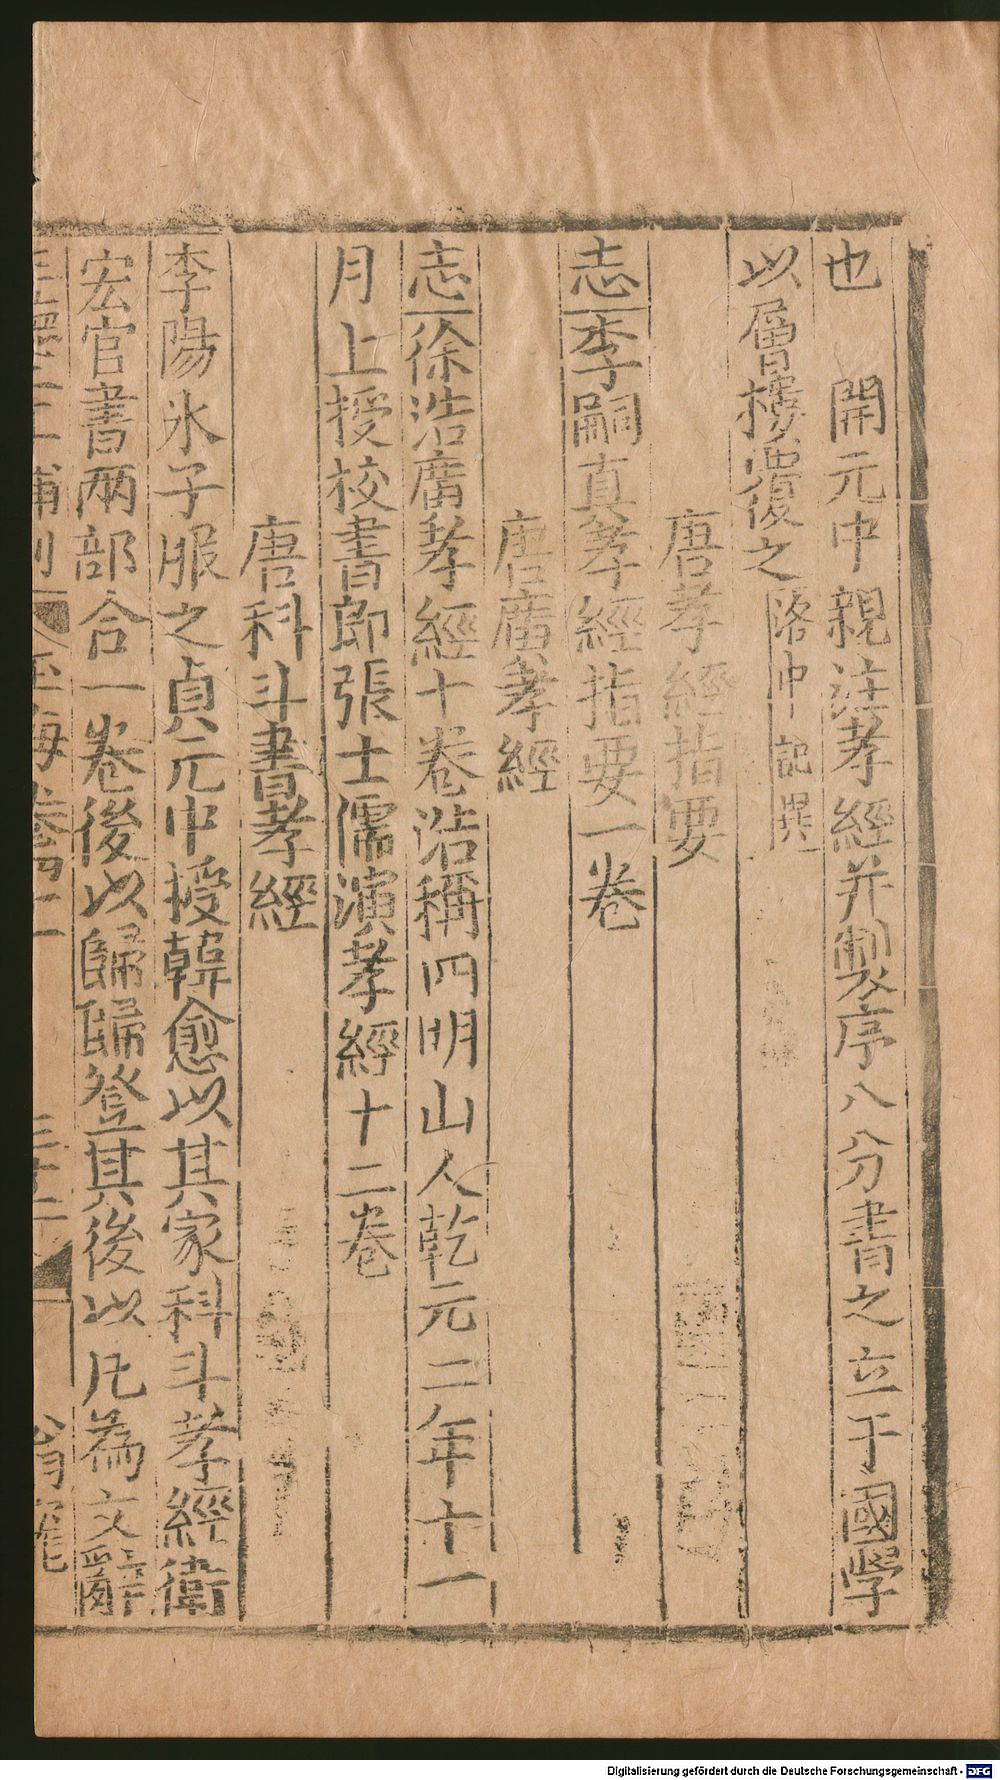 也　開元中親注孝經并製序八分書之立于國學
以層樓覆之洛中記異
唐孝經指要
志李嗣真孝經指要一卷
唐廣孝經
志徐浩廣孝經十卷浩稱四明山人乾元二年十一
月上授校書郎張士儒演孝經十二卷
唐科斗書孝經
李陽氷子服之貞元中授韓愈以其家科斗孝經衛
宏官書兩部合一卷後以歸歸登其後以凡為文辭
玉海卷四十一　三十二
Digitalisierung gefördert durch die Deutsche Forschungsgemeinschaft - DFG